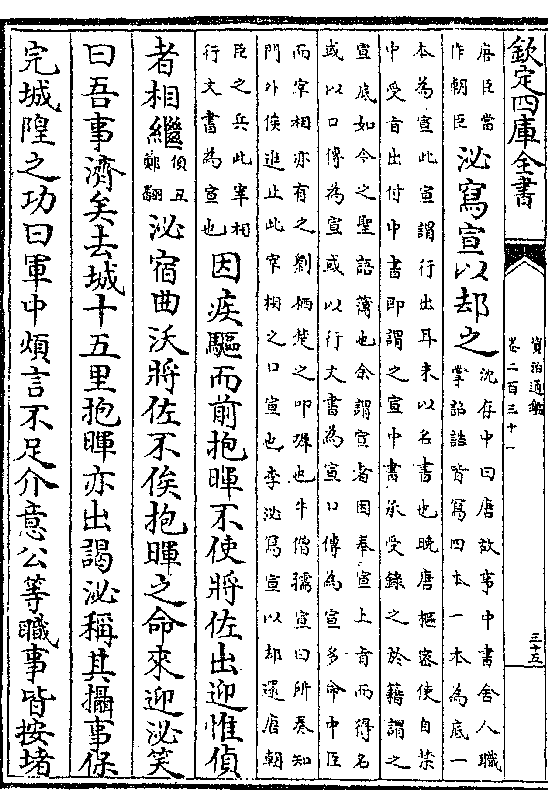 欽定四庫全書
資治通鑑
卷二百三十一
三十五
唐臣當
作朝臣
泌寫宣以却之
沈存中曰唐故事中書舍人職
掌詔誥皆寫四本一本為底一
本為宣此宣謂行出耳未以名書也晚唐樞密使自禁
中受旨出付中書即謂之宣中書承受錄之於籍謂之
宣底如今之聖語簿也余謂宣者因奉宣上旨而得名
或以口傳為宣或以行文書為宣口傳為宣多命中臣
而宰相亦有之劉栖楚之叩墀也牛僧孺宣曰所奏知
門外俟進止此宰相之口宣也李泌寫宣以却還唐朝
臣之兵此宰相
行文書為宣也
因疾驅而前抱暉不使將佐出迎惟偵
者相繼
偵丑
鄭翻
泌宿曲沃將佐不俟抱暉之命來迎泌笑
曰吾事濟矣去城十五里抱暉亦出謁泌稱其攝事保
完城隍之功曰軍中煩言不足介意公等職事皆按堵